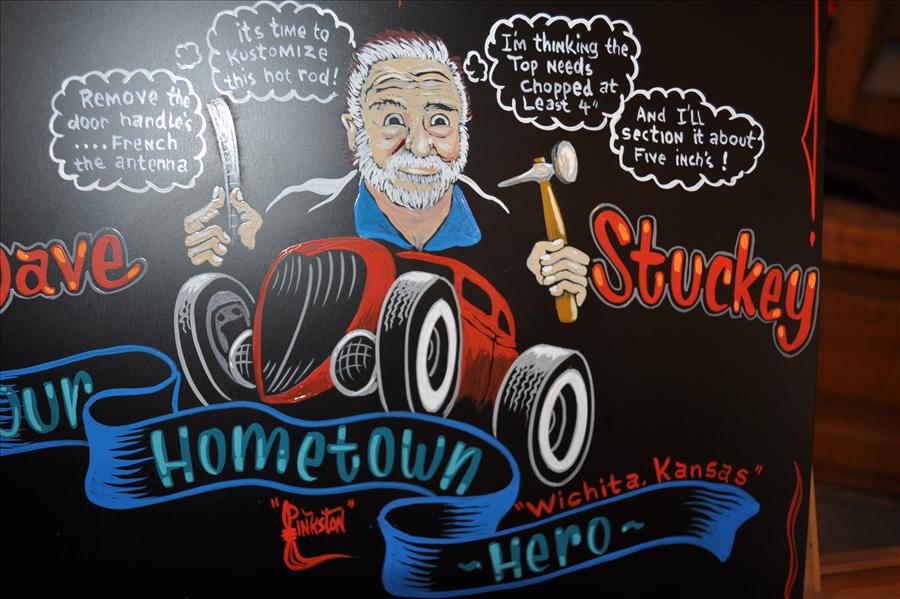 Remove the
door handle's
....French
the antenna
it's time to
Kustomize
this hot rod!
I'm thinking the
Top needs
chopped at
Least 4"
And I'll
section it about
Five inch's!
Dave
Stuckey
our
Hometown
"Wichita, Kansas"
"Pinkston"
~Hero~